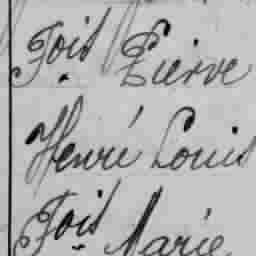 Fois Pierre
Henri Louis
Fois Marie